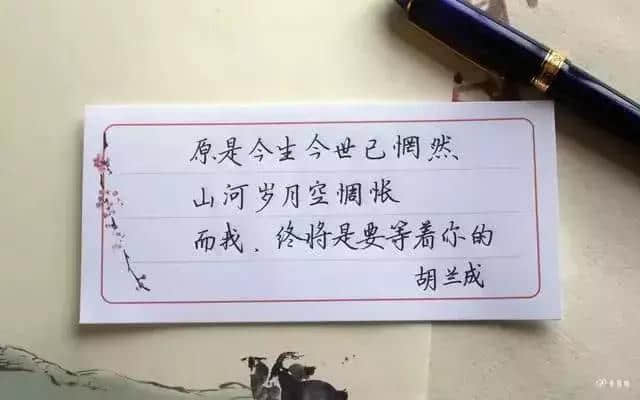 原是今生今世已惘然
山河岁月空惆怅
而我、终将是要等着你的
胡兰成